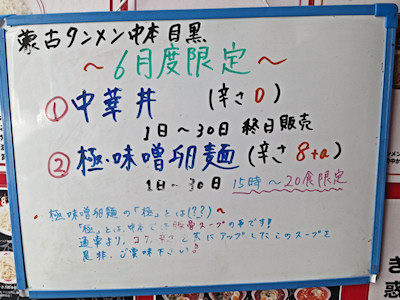 蒙古タンメン中本目黒
～6月度限定～
① 中華丼 (辛さ0)
1日～30日 終日販売
② 極・味噌卵麺 (辛さ8+α)
1日～30日 15時～20食限定
極味噌卵麺の「極」とは(??)～
「極」とは、スープの事です!!
通常より、コク、共にアップしたこのスープを
是非、ご賞味下さい